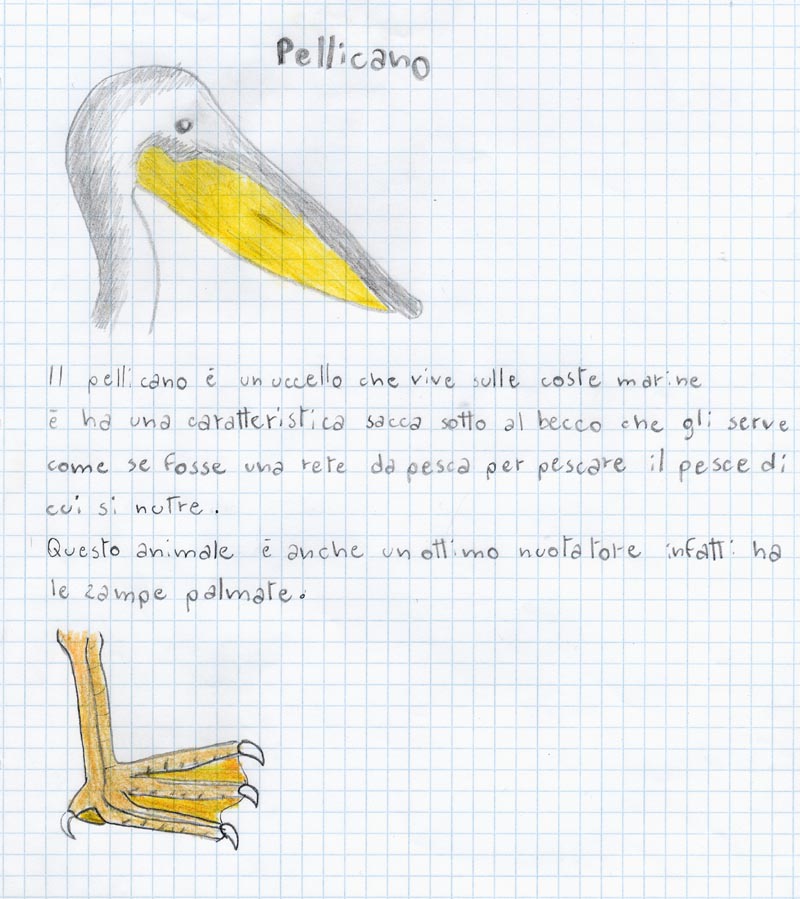 Pellicano
Il pellicano é un uccello che vive sulle coste marine
é ha una caratteristica sacca sotto al becco che gli serve
come se fosse una rete da pesca per pescare il pesce di
cui si nutre.
Questo animale é anche un ottimo nuotatore infatti ha
le zampe palmate.